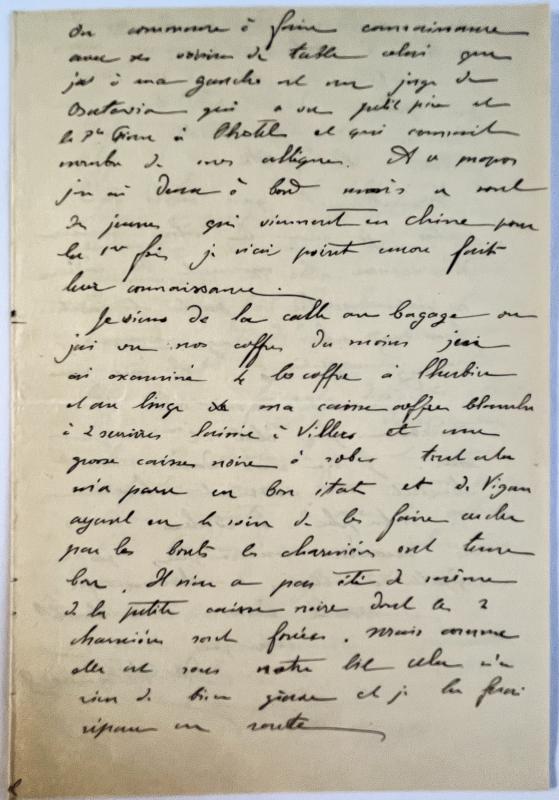 on commence à faire connaissance
avec ses voisins de table celui que
j'ai à ma gauche est un juge de
Batavia qui a un petit pied et
à l'hotel et qui connait
nombre de mes collègues. A ce propos
j'en ai deux à bord mais ce sont
des jeunes qui viennent en chine pour
la 1ere fois je n'ai point encore fait
leur connaissance.
Je viens de la calle au bagage ou
j'ai vu nos coffres du moins j'en
ai examiné 4 les coffre à
et au linge de ma caisse coffre blanche
à 2 serrures laissée à Villers et une
grosse caisse noire à robes tout cela
m'a paru en bon état et de Vigan
ayant eu le soin de les faire
par les bouts les charnières ont tenu
bon. Il n'en a pas été de même
de la petite caisse noire dont les 2
charnières sont forcées. Mais comme
elle est sous notre lit cela n'a
rien de bien grave et je la ferai
réparer en route